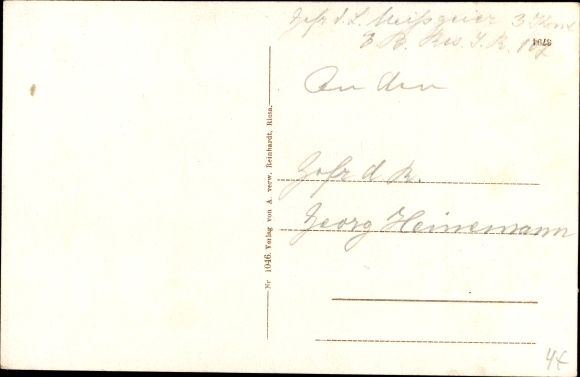 Gefr. d. L. Meißgeier 3 Kom
E. B. Res. I. R. 107
An den
Gefr d R.
Georg Heinemann
Nr 1046. Verlag von A. verw. Reinhardt, Riesa.
4€